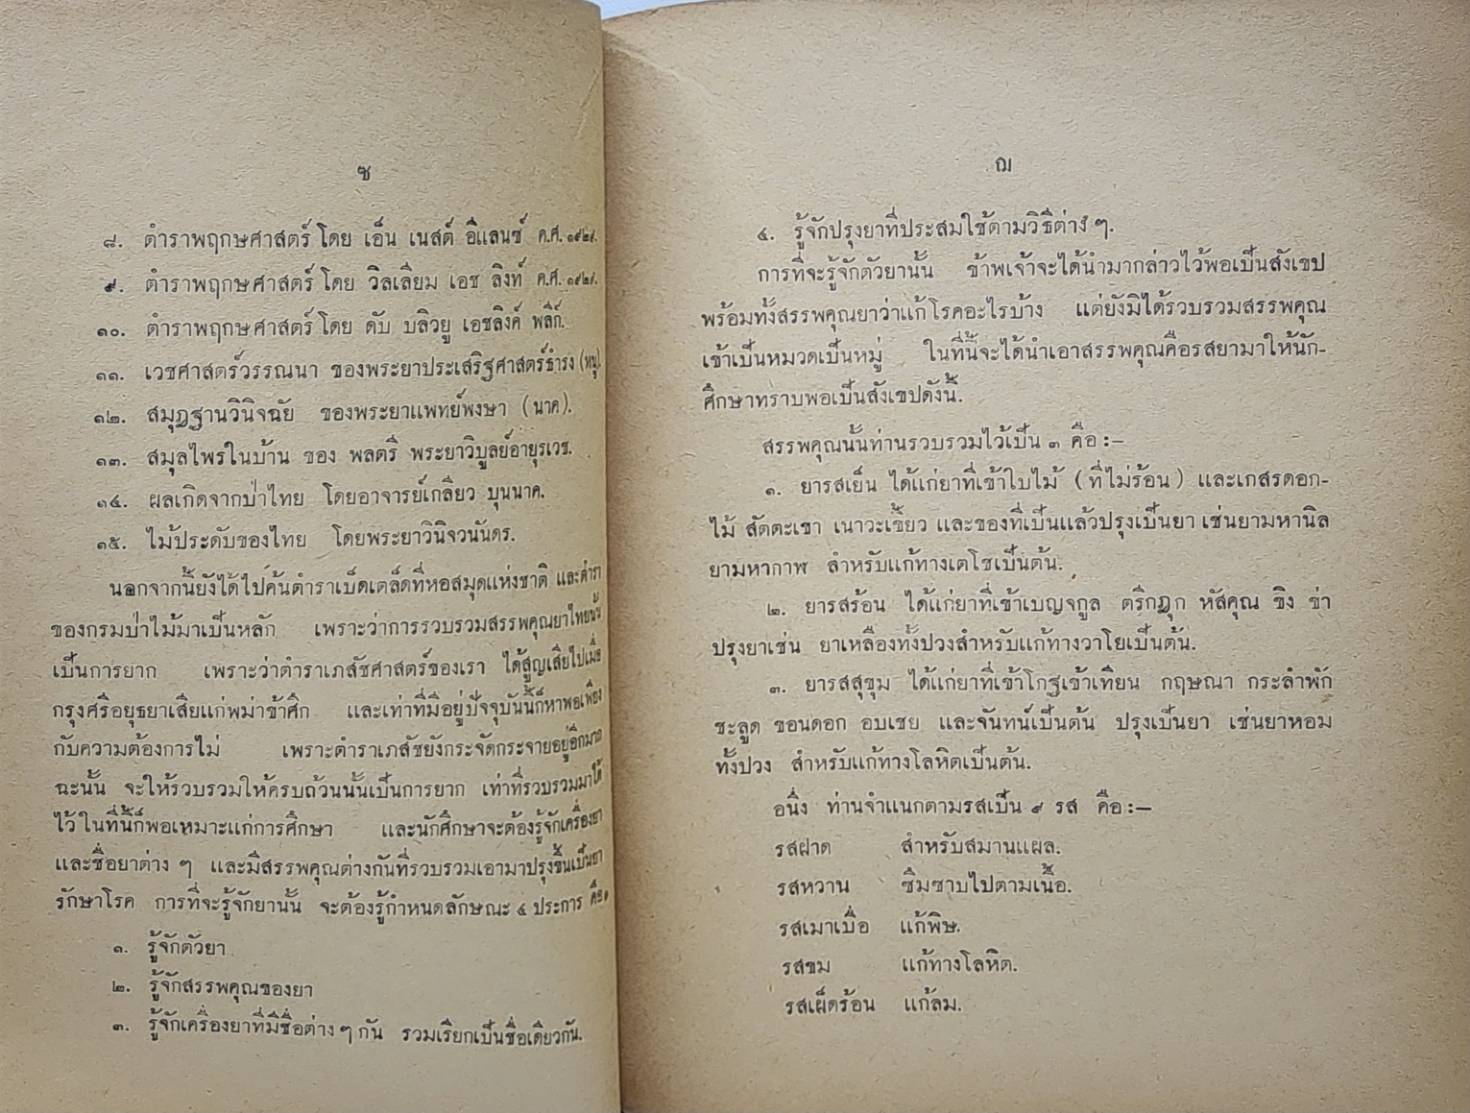 ซ
๘. ตำราพฤกษศาสตร์ โดย เอ็น เนสต์ อีแลนซ์ ค.ศ. ๑๙๒๙.
๙. ตำราพฤกษศาสตร์ โดย วิลเลี่ยม เอช ลิงท์ ค.ศ. ๑๙๒๙.
๑๐. ตำราพฤกษศาสตร์ โดย ดับ บลิวยู เอชลิงค์ พลีก์.
๑๑. เวชศาสตร์วรรณนา ของพระยาประเสริฐศาสตร์ธำรง (หนู).
๑๒. สมุฏฐานวินิจฉัย ของพระยาแพทย์พงษา (นาค).
๑๓. สมุลไพรในบ้าน ของ พลตรี พระยาวิบูลย์อายุรเวช.
๑๔. ผลเกิดจากป่าไทย โดยอาจารย์เกลียว บุนนาค.
๑๕. ไม้ประดับของไทย โดยพระยาวินิจวนันดร.
นอกจากนี้ยังได้ไปค้นตำราเบ็ดเตล็ดที่หอสมุดแห่งชาติ และตำรา
ของกรมป่าไม้มาเป็นหลัก เพราะว่าการรวบรวมสรรพคุณยาไทยนั้น
เป็นการยาก เพราะว่าตำราเภสัชศาสตร์ของเรา ได้สูญเสียไปเมื่อ
กรุงศรีอยุธยาเสียแก่พม่าข้าศึก และเท่าที่มีอยู่ปัจจุบันนี้ก็หาพอเพียง
กับความต้องการไม่ เพราะตำราเภสัชยังกระจัดกระจายอยู่อีกมาก
ฉะนั้น จะให้รวบรวมให้ครบถ้วนนั้นเป็นการยาก เท่าที่รวบรวมมาได้
ไว้ในที่นี้ก็พอเหมาะแก่การศึกษา และนักศึกษาจะต้องรู้จักเครื่องยา
และชื่อยาต่าง ๆ และมีสรรพคุณต่างกันที่รวบรวมเอามาปรุงขึ้นเป็นยา
รักษาโรค การที่จะรู้จักยานั้น จะต้องรู้กำหนดลักษณะ ๔ ประการ คือ
๑. รู้จักตัวยา
๒. รู้จักสรรพคุณของยา
๓. รู้จักเครื่องยาที่มีชื่อต่าง ๆ กัน รวมเรียกเป็นชื่อเดียวกัน.
ฌ
๔. รู้จักปรุงยาที่ประสมใช้ตามวิธีต่าง ๆ.
การที่จะรู้จักตัวยานั้น ข้าพเจ้าจะได้นำมากล่าวไว้พอเป็นสังเขป
พร้อมทั้งสรรพคุณยาว่าแก้โรคอะไรบ้าง แต่ยังมิได้รวบรวมสรรพคุณ
เข้าเป็นหมวดเป็นหมู่ ในที่นี้จะได้นำเอาสรรพคุณคือรสยามาให้นัก-
ศึกษาทราบพอเป็นสังเขปดังนี้.
สรรพคุณนั้นท่านรวบรวมไว้เป็น ๓ คือ :–
๑. ยารสเย็น ได้แก่ยาที่เข้าใบไม้ (ที่ไม่ร้อน) และเกสรดอก-
ไม้ สัตตะเขา เนาวะเขี้ยว และของที่เป็นแล้วปรุงเป็นยา เช่นยามหานิล
ยามหากาฬ สำหรับแก้ทางเตโชเป็นต้น.
๒. ยารสร้อน ได้แก่ยาที่เข้าเบญจกูล ตรีกฏุก หัสคุณ ขิง ข่า
ปรุงยาเช่น ยาเหลืองทั้งปวงสำหรับแก้ทางวาโยเป็นต้น.
๓. ยารสสุขุม ได้แก่ยาที่เข้าโกฐเข้าเทียน กฤษณา กระลำพัก
ชะลูด ขอนดอก อบเชย และจันทน์เป็นต้น ปรุงเป็นยา เช่นยาหอม
ทั้งปวง สำหรับแก้ทางโลหิตเป็นต้น.
อนึ่ง ท่านจำแนกตามรสเป็น ๙ รส คือ :–
รสฝาด สำหรับสมานแผล.
รสหวาน ซึมซาบไปตามเนื้อ.
รสเมาเบื่อ แก้พิษ.
รสขม แก้ทางโลหิต.
รสเผ็ดร้อน แก้ลม.